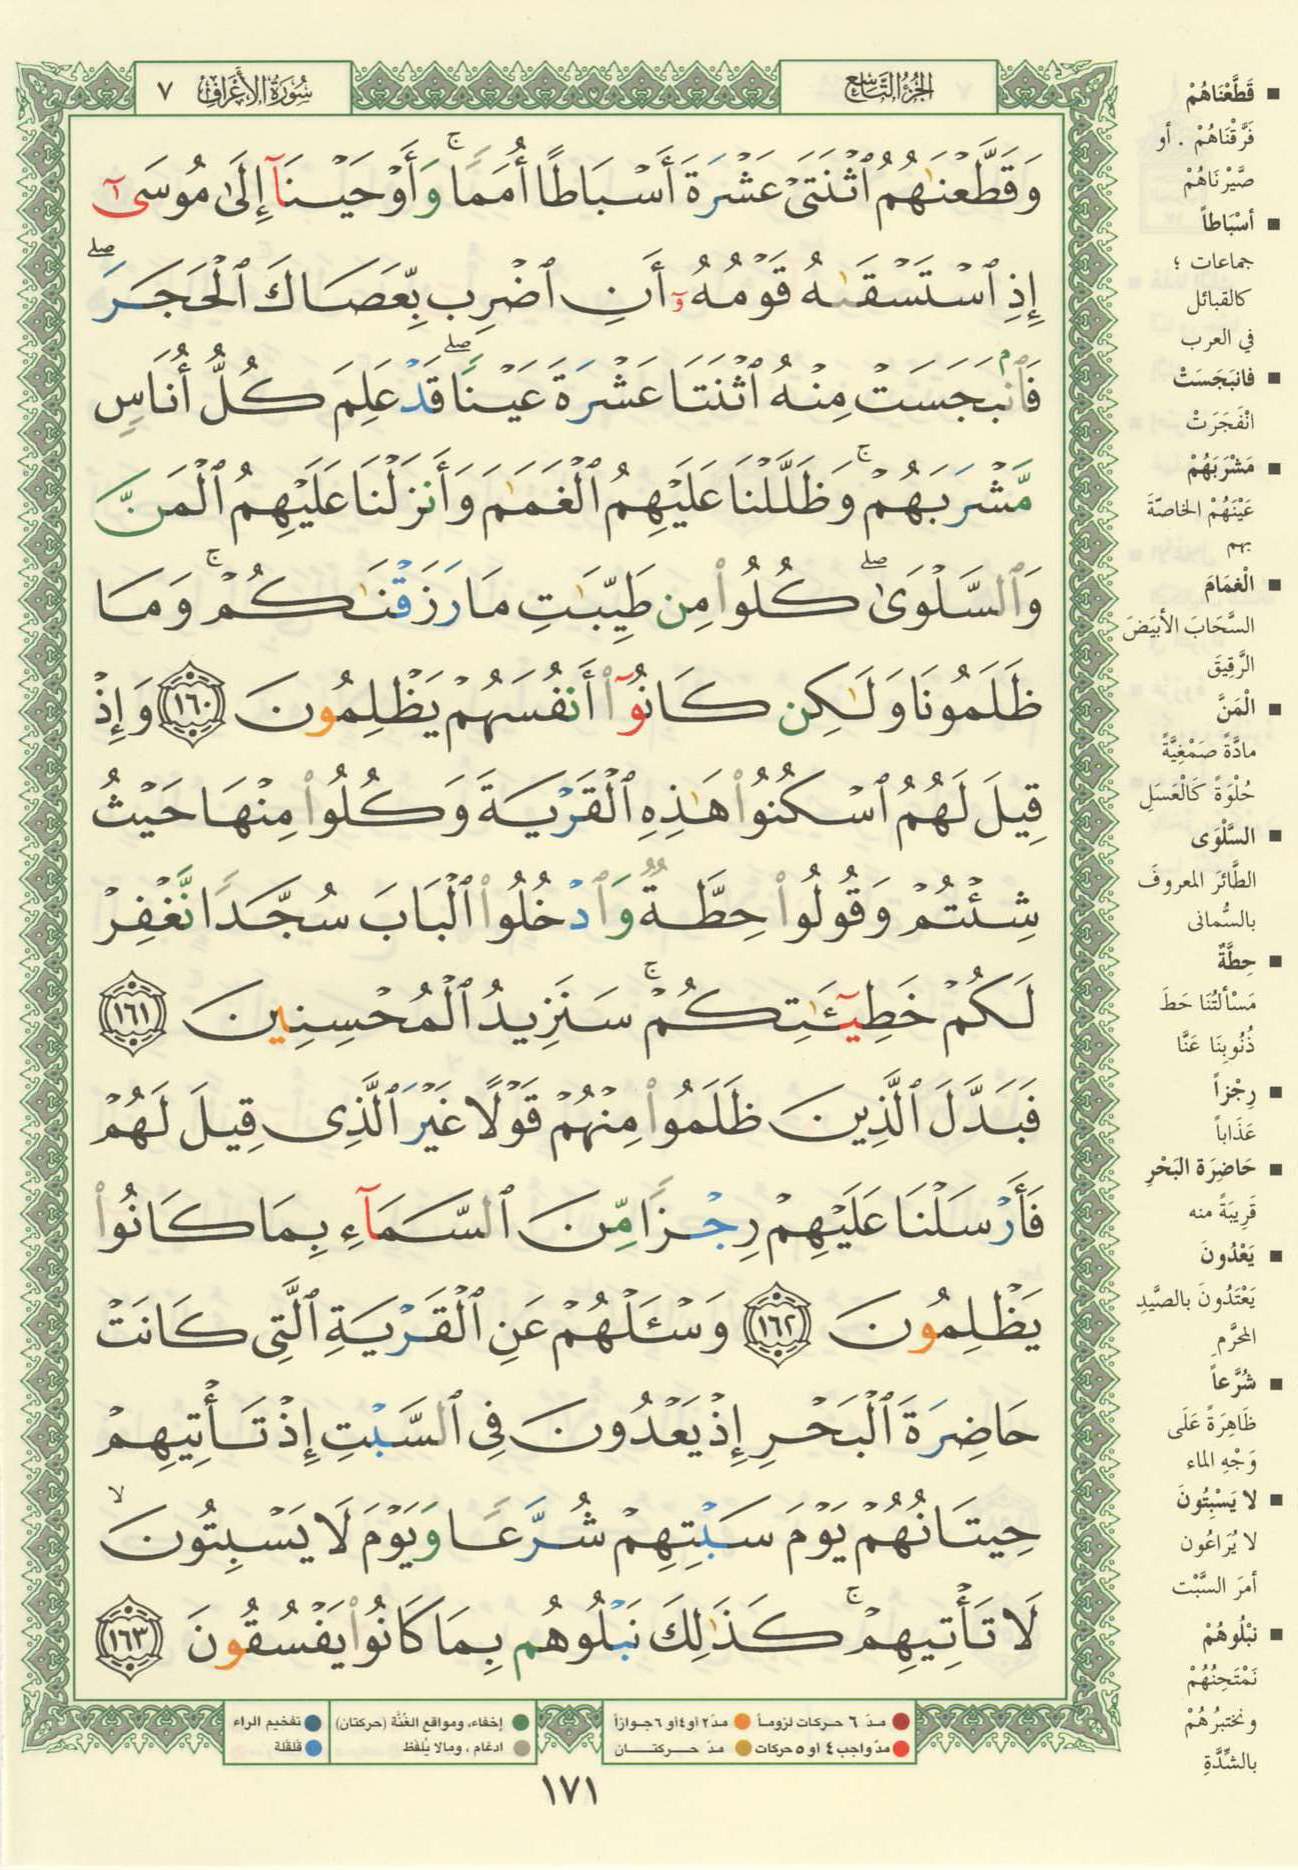 سُورَةُ الأَعْرَافِ ٧
الجُزْءُ التَّاسِعُ
وَقَطَّعْنَـٰهُمُ ٱثْنَتَىْ عَشْرَةَ أَسْبَاطًا أُمَمًا ۚ وَأَوْحَيْنَآ إِلَىٰ مُوسَىٰٓ
إِذِ ٱسْتَسْقَىٰهُ قَوْمُهُۥٓ أَنِ ٱضْرِب بِّعَصَاكَ ٱلْحَجَرَ ۖ
فَٱنۢبَجَسَتْ مِنْهُ ٱثْنَتَا عَشْرَةَ عَيْنًا ۖ قَدْ عَلِمَ كُلُّ أُنَاسٍ
مَّشْرَبَهُمْ ۚ وَظَلَّلْنَا عَلَيْهِمُ ٱلْغَمَـٰمَ وَأَنزَلْنَا عَلَيْهِمُ ٱلْمَنَّ
وَٱلسَّلْوَىٰ ۖ كُلُوا۟ مِن طَيِّبَـٰتِ مَا رَزَقْنَـٰكُمْ ۚ وَمَا
ظَلَمُونَا وَلَـٰكِن كَانُوٓا۟ أَنفُسَهُمْ يَظْلِمُونَ ١٦٠ وَإِذْ
قِيلَ لَهُمُ ٱسْكُنُوا۟ هَـٰذِهِ ٱلْقَرْيَةَ وَكُلُوا۟ مِنْهَا حَيْثُ
شِئْتُمْ وَقُولُوا۟ حِطَّةٌ وَٱدْخُلُوا۟ ٱلْبَابَ سُجَّدًا نَّغْفِرْ
لَكُمْ خَطِيٓـَٔـٰتِكُمْ ۚ سَنَزِيدُ ٱلْمُحْسِنِينَ ١٦١
فَبَدَّلَ ٱلَّذِينَ ظَلَمُوا۟ مِنْهُمْ قَوْلًا غَيْرَ ٱلَّذِى قِيلَ لَهُمْ
فَأَرْسَلْنَا عَلَيْهِمْ رِجْزًا مِّنَ ٱلسَّمَآءِ بِمَا كَانُوا۟
يَظْلِمُونَ ١٦٢ وَسْـَٔلْهُمْ عَنِ ٱلْقَرْيَةِ ٱلَّتِى كَانَتْ
حَاضِرَةَ ٱلْبَحْرِ إِذْ يَعْدُونَ فِى ٱلسَّبْتِ إِذْ تَأْتِيهِمْ
حِيتَانُهُمْ يَوْمَ سَبْتِهِمْ شُرَّعًا وَيَوْمَ لَا يَسْبِتُونَ ۙ
لَا تَأْتِيهِمْ ۚ كَذَٰلِكَ نَبْلُوهُم بِمَا كَانُوا۟ يَفْسُقُونَ ١٦٣
قَطَّعْنَاهُمْ
فَرَّقْنَاهُمْ . أو
صَيَّرْنَاهُمْ
أسْبَاطاً
جماعات ؛
كالقبائل
في العرب
فانبَجَسَتْ
انْفَجَرَتْ
مَشْرَبَهُمْ
عَيْنَهُمْ الخاصّةَ
بهم
الْغمَامَ
السَّحَابَ الأبيَضَ
الرَّقِيقَ
الْمَنَّ
مادَّةً صَمْغِيَّةً
حُلْوَةً كَالْعَسَلِ
السَّلْوَى
الطَّائرَ المعروفَ
بالسُّمانى
حِطَّةٌ
مَسْألَتُنَا حَطَّ
ذُنُوبِنَا عَنَّا
رِجْزاً
عَذَاباً
حَاضِرَةَ البَحْرِ
قَرِيبَةً منه
يَعْدُونَ
يَعْتَدُونَ بالصَّيدِ
المحرَّمِ
شُرَّعاً
ظَاهِرَةً عَلَى
وَجْهِ الماء
لا يَسْبِتُونَ
لا يُرَاعُون
أمرَ السَّبْت
نبْلُوهُمْ
نَمْتَحِنُهُمْ
ونختبرُهُمْ
بالشِّدَّةِ
مدّ ٦ حركات لزوماً مدّ٢ أو٤أو ٦جوازاً
مدّ واجب ٤ أو ٥ حركات مدّ حركتان
إخفاء، ومواقع الغُنَّة (حركتان) تفخيم الراء
ادغام ، ومالا يُلفَظ قلقلة
١٧١